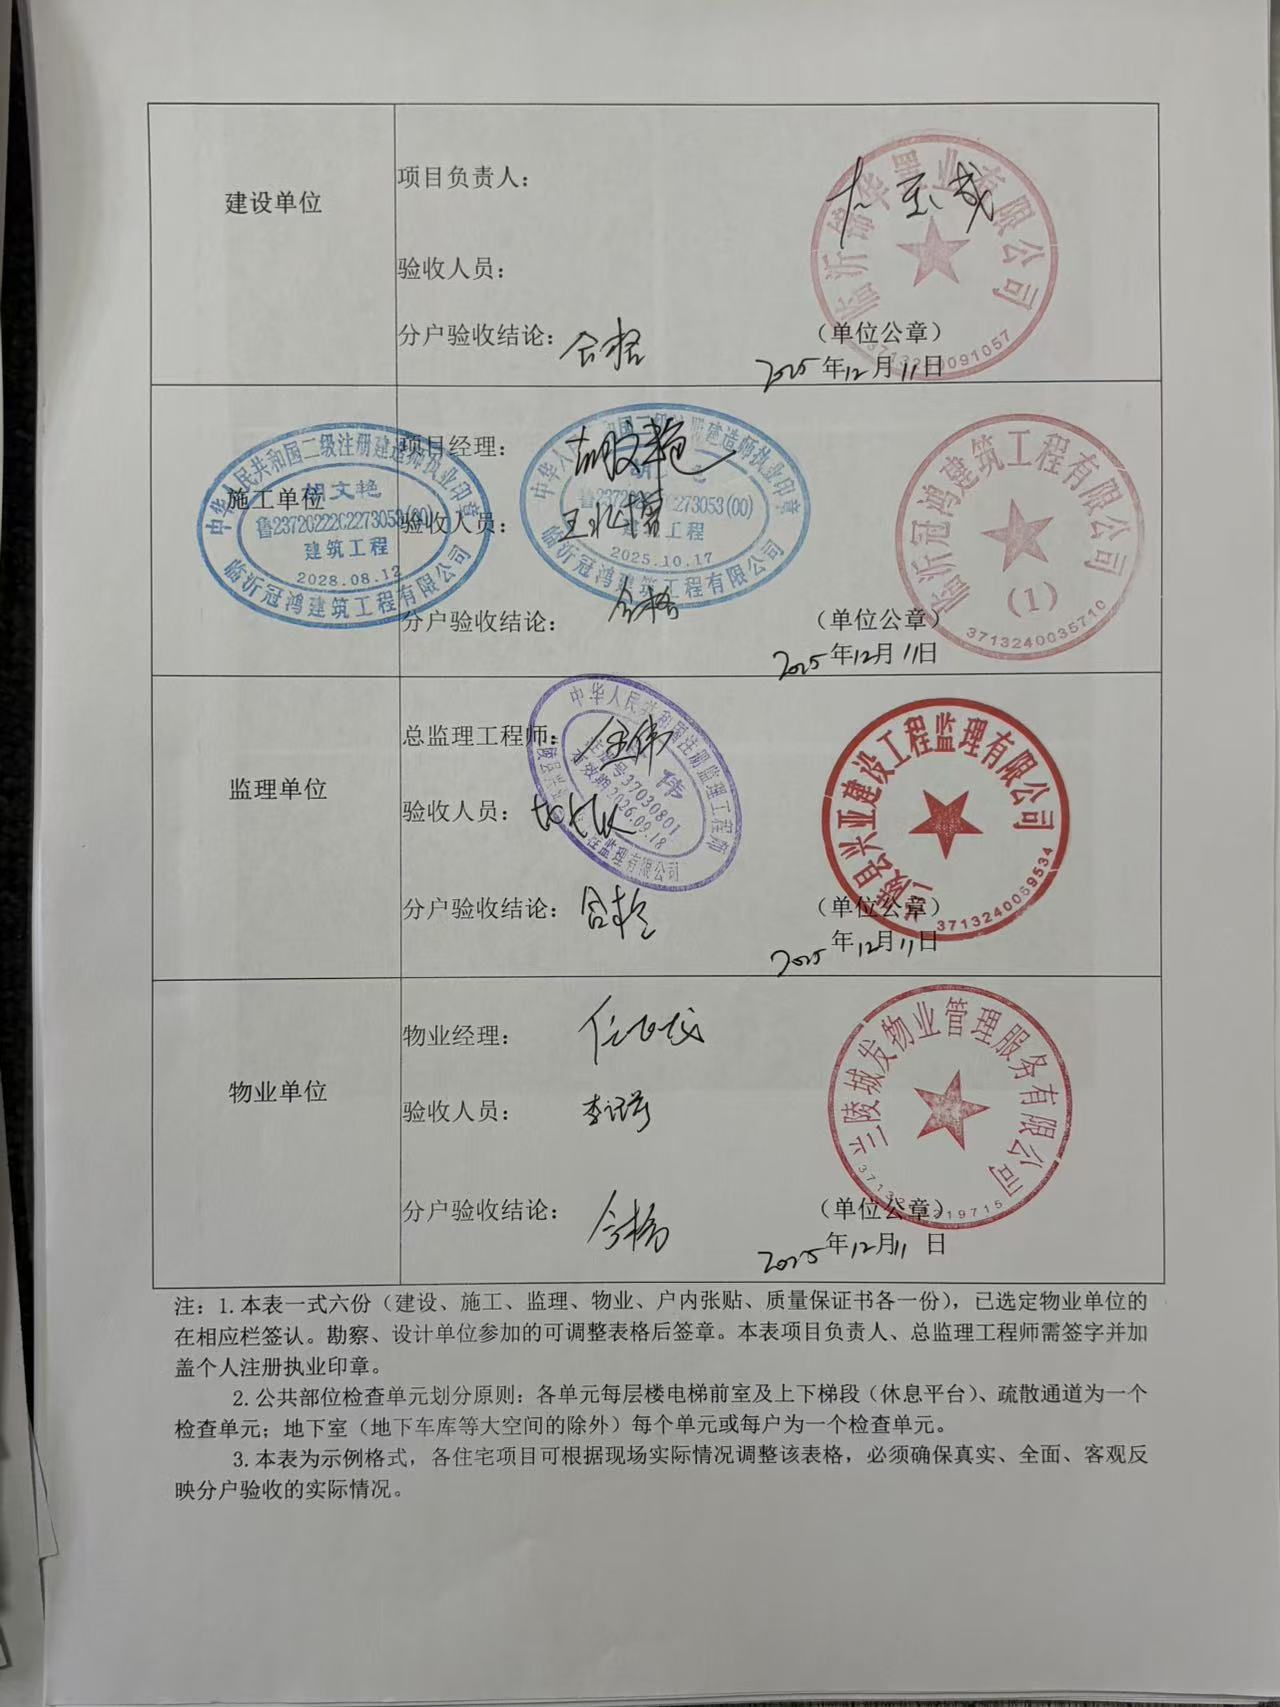 建设单位
项目负责人：
验收人员：
分户验收结论：合格
（单位公章）
2025年12月11日
有限公司
施工单位
项目经理：胡文艳
验收人员：
分户验收结论：合格
（单位公章）
2025年12月11日
中华人民共和国二级注册建造师执业印章
胡文艳
建筑工程
2028.08.12
临沂冠鸿建筑工程有限公司
建筑工程
2025.10.17
临沂冠鸿建筑工程有限公司
临沂冠鸿建筑工程有限公司
(1)
3713240035710
监理单位
总监理工程师：
验收人员：
分户验收结论：合格
（单位公章）
2025年12月11日
中华人民共和国注册监理工程师
注册号37030801
有效期2026.09.18
兰陵县兴亚建设工程监理有限公司
3713240059534
物业单位
物业经理：
验收人员：
分户验收结论：合格
（单位公章）
2025年12月11日
兰陵城发物业管理服务有限公司
注：1.本表一式六份（建设、施工、监理、物业、户内张贴、质量保证书各一份），已选定物业单位的
在相应栏签认。勘察、设计单位参加的可调整表格后签章。本表项目负责人、总监理工程师需签字并加
盖个人注册执业印章。
2.公共部位检查单元划分原则：各单元每层楼电梯前室及上下梯段（休息平台）、疏散通道为一个
检查单元；地下室（地下车库等大空间的除外）每个单元或每户为一个检查单元。
3.本表为示例格式，各住宅项目可根据现场实际情况调整该表格，必须确保真实、全面、客观反
映分户验收的实际情况。